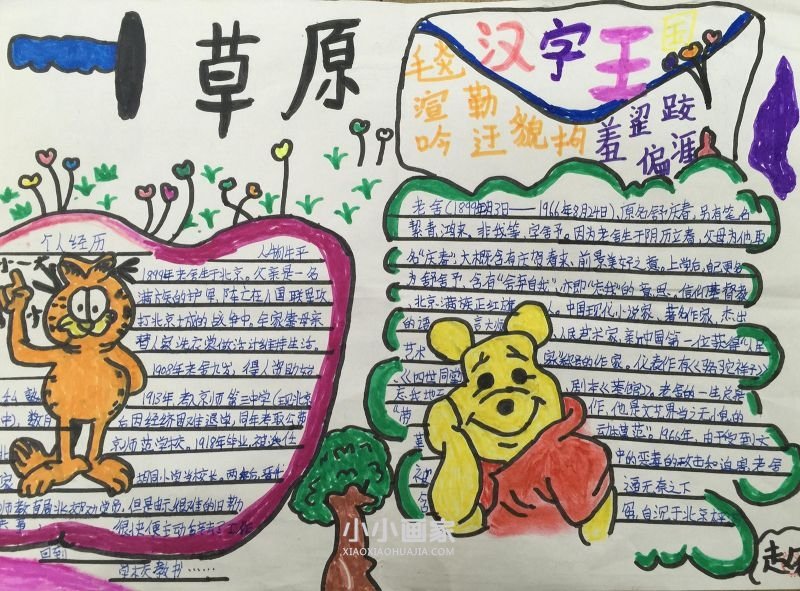 草原
汉字王国
毯
渲 勒
吟 迂 貌 拘
羞 涩 跤
偏 涯
个人经历
人物生平
1899年老舍生于北京。父亲是一名
满族的护军,阵亡在八国联军攻
打北京城的战争中。全家靠母亲
替人家洗衣裳做活计维持生活。
1908年老舍九岁,得人资助始
1913年考
京师第三中学(现北京
后因经济困难退学,同年考取公费
京师范学校。1918年毕业,
小学当校长。两年后,
但是由于很难
很快便主动辞去了
工作
回到
学校教书……
老舍(1899年
3日——1966年8月24日),原名舒庆春,另有笔名
絜青、鸿来、非我等,字舍予。因为老舍生于阴历立春,父母为他取
名"庆春",大概含有庆贺春来、前景美好之意。上学后,自己更名
为舒舍予,含有"舍弃自我",亦即"忘我"的意思。信仰基督教
北京满族正红旗
人。中国现代小说家、著名作家,杰出
的语
言大师、
人民艺术家,新中国第一位获得"人民
艺术
家"称号的作家。代表作有《骆驼祥子》
、《四世同堂
剧本《茶馆》。老舍的一生总是
忘我地工
作,他是文艺界当之无愧的
"劳
动模范"。1966年,由于受到文
中的
攻击和迫害,老舍
被
逼无奈之下
含
自沉于北京太
小小画家
XIAOXIAOHUAJIA.COM